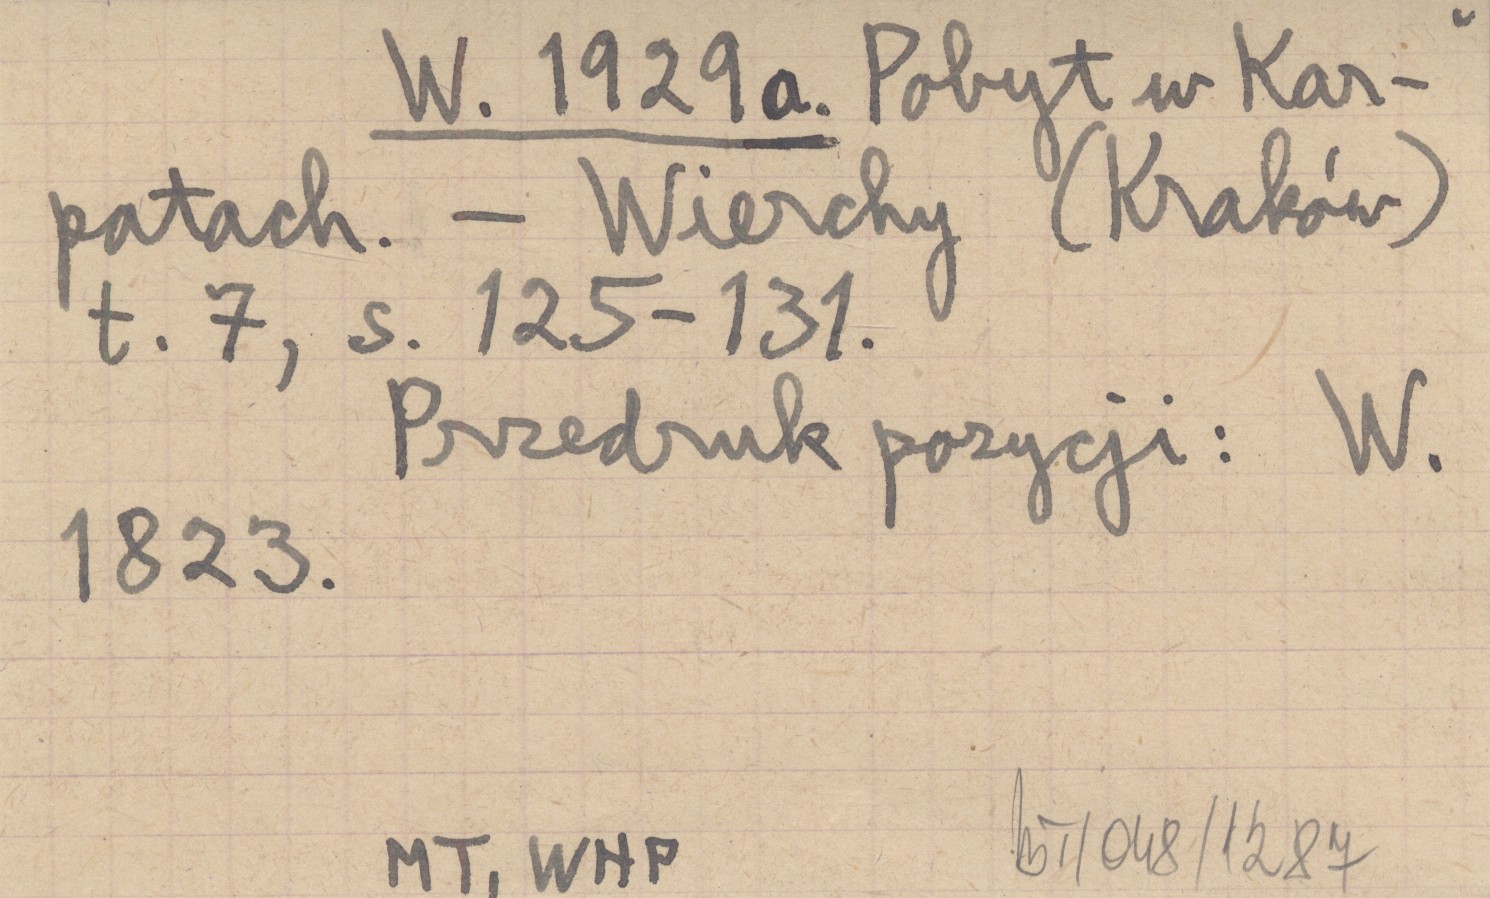 W. 1929a. Pobyt w Kar-
patach. – Wierchy (Kraków)
t. 7, s. 125-131.
Przedruk pozycji: W.
1823.
MT, WHP
/048/1287